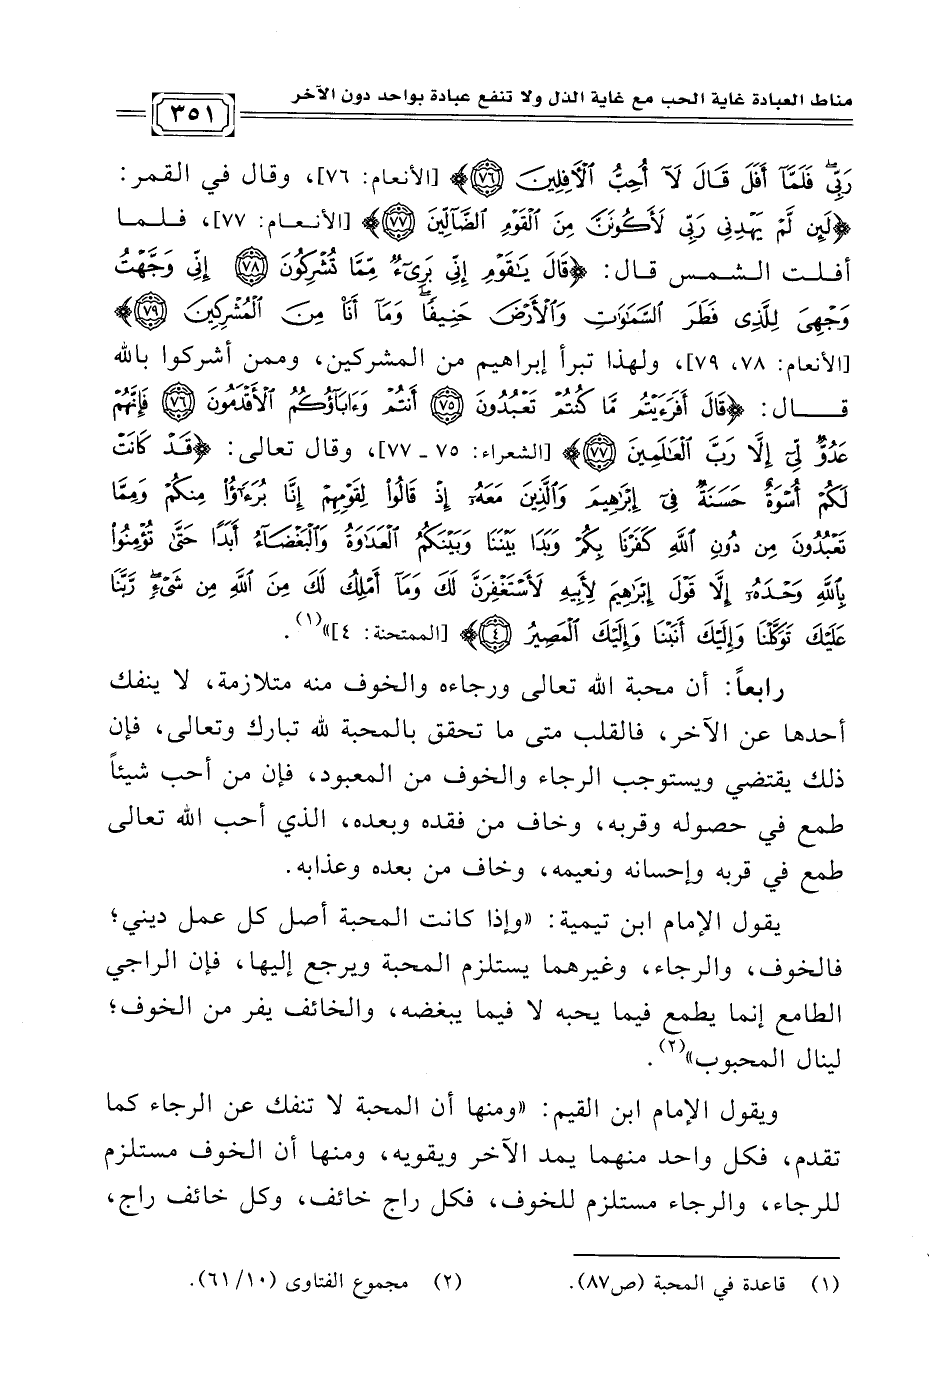 مناط العبادة غاية الحب مع غاية الذل ولا تنفع عبادة بواحد دون الآخر
٣٥١
رَبِّىۖ فَلَمَّآ أَفَلَ قَالَ لَآ أُحِبُّ ٱلْأَفِلِينَ ﴿٧٦﴾﴾ [الأنعام: ٧٦]، وقال في القمر:
﴿لَئِن لَّمْ يَهْدِنِى رَبِّى لَأَكُونَنَّ مِنَ ٱلْقَوْمِ ٱلضَّآلِّينَ ﴿٧٧﴾﴾ [الأنعام: ٧٧]، فلما
أفلت الشمس قال: ﴿قَالَ يَٰقَوْمِ إِنِّى بَرِىٓءٌ مِّمَّا تُشْرِكُونَ ﴿٧٨﴾ إِنِّى وَجَّهْتُ
وَجْهِىَ لِلَّذِى فَطَرَ ٱلسَّمَٰوَٰتِ وَٱلْأَرْضَ حَنِيفًاۖ وَمَآ أَنَا۠ مِنَ ٱلْمُشْرِكِينَ ﴿٧٩﴾﴾
[الأنعام: ٧٨، ٧٩]، ولهذا تبرأ إبراهيم من المشركين، وممن أشركوا بالله
قال: ﴿قَالَ أَفَرَءَيْتُم مَّا كُنتُمْ تَعْبُدُونَ ﴿٧٥﴾ أَنتُمْ وَءَابَآؤُكُمُ ٱلْأَقْدَمُونَ ﴿٧٦﴾ فَإِنَّهُمْ
عَدُوٌّ لِّىٓ إِلَّا رَبَّ ٱلْعَٰلَمِينَ ﴿٧٧﴾﴾ [الشعراء: ٧٥ - ٧٧]، وقال تعالى: ﴿قَدْ كَانَتْ
لَكُمْ أُسْوَةٌ حَسَنَةٌ فِىٓ إِبْرَٰهِيمَ وَٱلَّذِينَ مَعَهُۥٓ إِذْ قَالُوا۟ لِقَوْمِهِمْ إِنَّا بُرَءَٰٓؤُا۟ مِنكُمْ وَمِمَّا
تَعْبُدُونَ مِن دُونِ ٱللَّهِ كَفَرْنَا بِكُمْ وَبَدَا بَيْنَنَا وَبَيْنَكُمُ ٱلْعَدَٰوَةُ وَٱلْبَغْضَآءُ أَبَدًا حَتَّىٰ تُؤْمِنُوا۟
بِٱللَّهِ وَحْدَهُۥٓ إِلَّا قَوْلَ إِبْرَٰهِيمَ لِأَبِيهِ لَأَسْتَغْفِرَنَّ لَكَ وَمَآ أَمْلِكُ لَكَ مِنَ ٱللَّهِ مِن شَىْءٍۖ رَّبَّنَا
عَلَيْكَ تَوَكَّلْنَا وَإِلَيْكَ أَنَبْنَا وَإِلَيْكَ ٱلْمَصِيرُ ﴿٤﴾﴾ [الممتحنة: ٤]»(١).
رابعاً: أن محبة الله تعالى ورجاءه والخوف منه متلازمة، لا ينفك
أحدها عن الآخر، فالقلب متى ما تحقق بالمحبة لله تبارك وتعالى، فإن
ذلك يقتضي ويستوجب الرجاء والخوف من المعبود، فإن من أحب شيئاً
طمع في حصوله وقربه، وخاف من فقده وبعده، الذي أحب الله تعالى
طمع في قربه وإحسانه ونعيمه، وخاف من بعده وعذابه.
يقول الإمام ابن تيمية: «وإذا كانت المحبة أصل كل عمل ديني؛
فالخوف، والرجاء، وغيرهما يستلزم المحبة ويرجع إليها، فإن الراجي
الطامع إنما يطمع فيما يحبه لا فيما يبغضه، والخائف يفر من الخوف؛
لينال المحبوب»(٢).
ويقول الإمام ابن القيم: «ومنها أن المحبة لا تنفك عن الرجاء كما
تقدم، فكل واحد منهما يمد الآخر ويقويه، ومنها أن الخوف مستلزم
للرجاء، والرجاء مستلزم للخوف، فكل راج خائف، وكل خائف راج،
(١) قاعدة في المحبة (ص٨٧). (٢) مجموع الفتاوى (١٠/ ٦١).